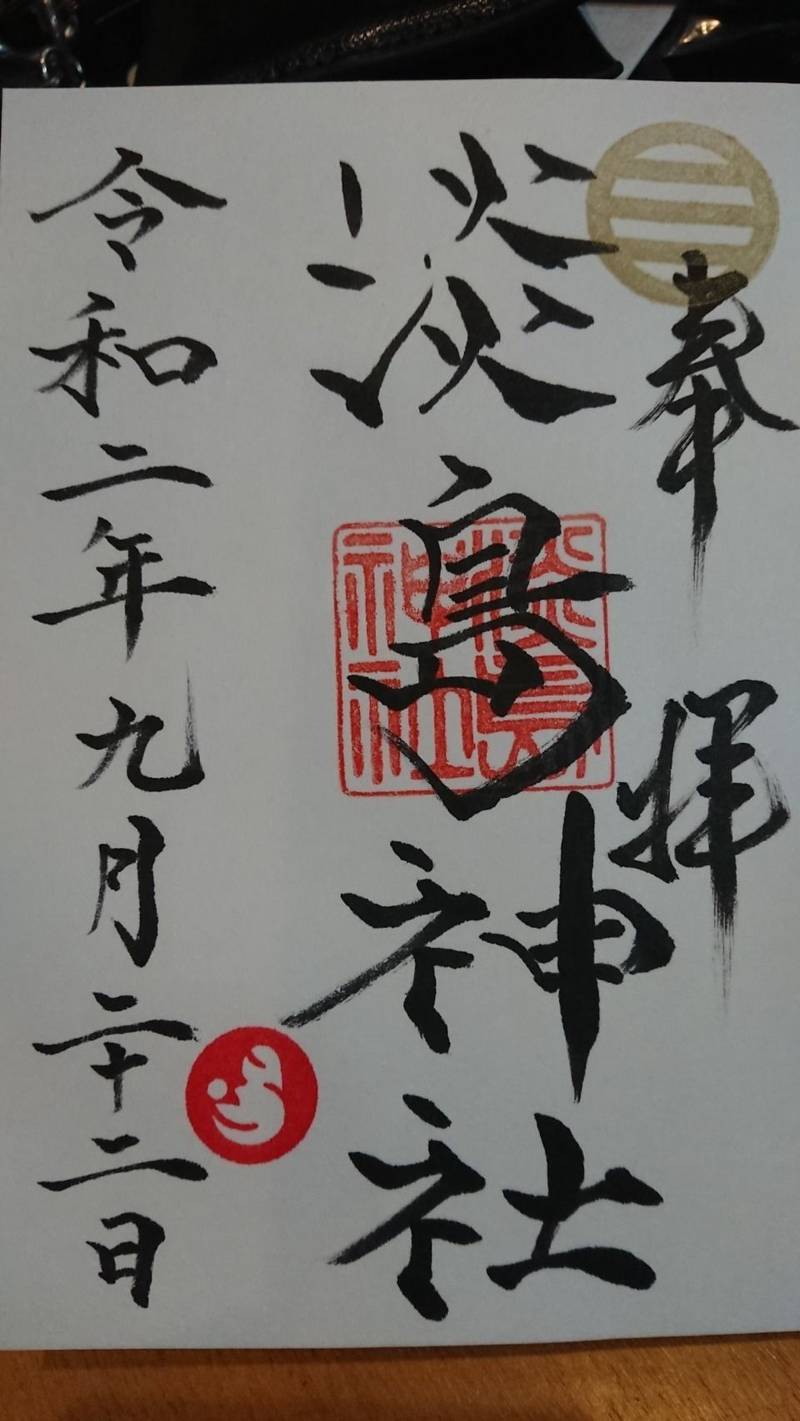 奉拝
淡島神社
淡島神社
令和二年九月二十二日